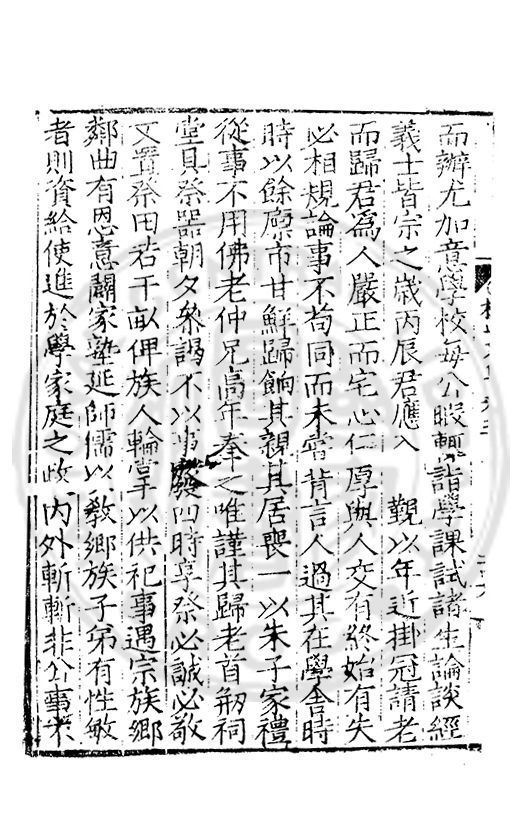 而辦尤加意學校每公暇輒詣學課試諸生論談經
義士皆宗之歲丙辰君應入 覲以年近掛冠請老
而歸君為人嚴正而宅心仁厚與人交有終始有失
必相規論事不苟同而未嘗背言人過其在學舍時
時以餘廩市甘鮮歸餉其親其居喪一以朱子家禮
從事不用佛老仲兄高年奉之唯謹其歸老首剏祠
堂具祭器朝夕叅謁不以事廢四時享祭必誠必敬
又置祭田若干畝俾族人輪掌以供祀事遇宗族鄉
鄰曲有恩意闢家塾延師儒以敎鄉族子弟有性敏
者則資給使進於學家庭之政內外斬斬非公事未